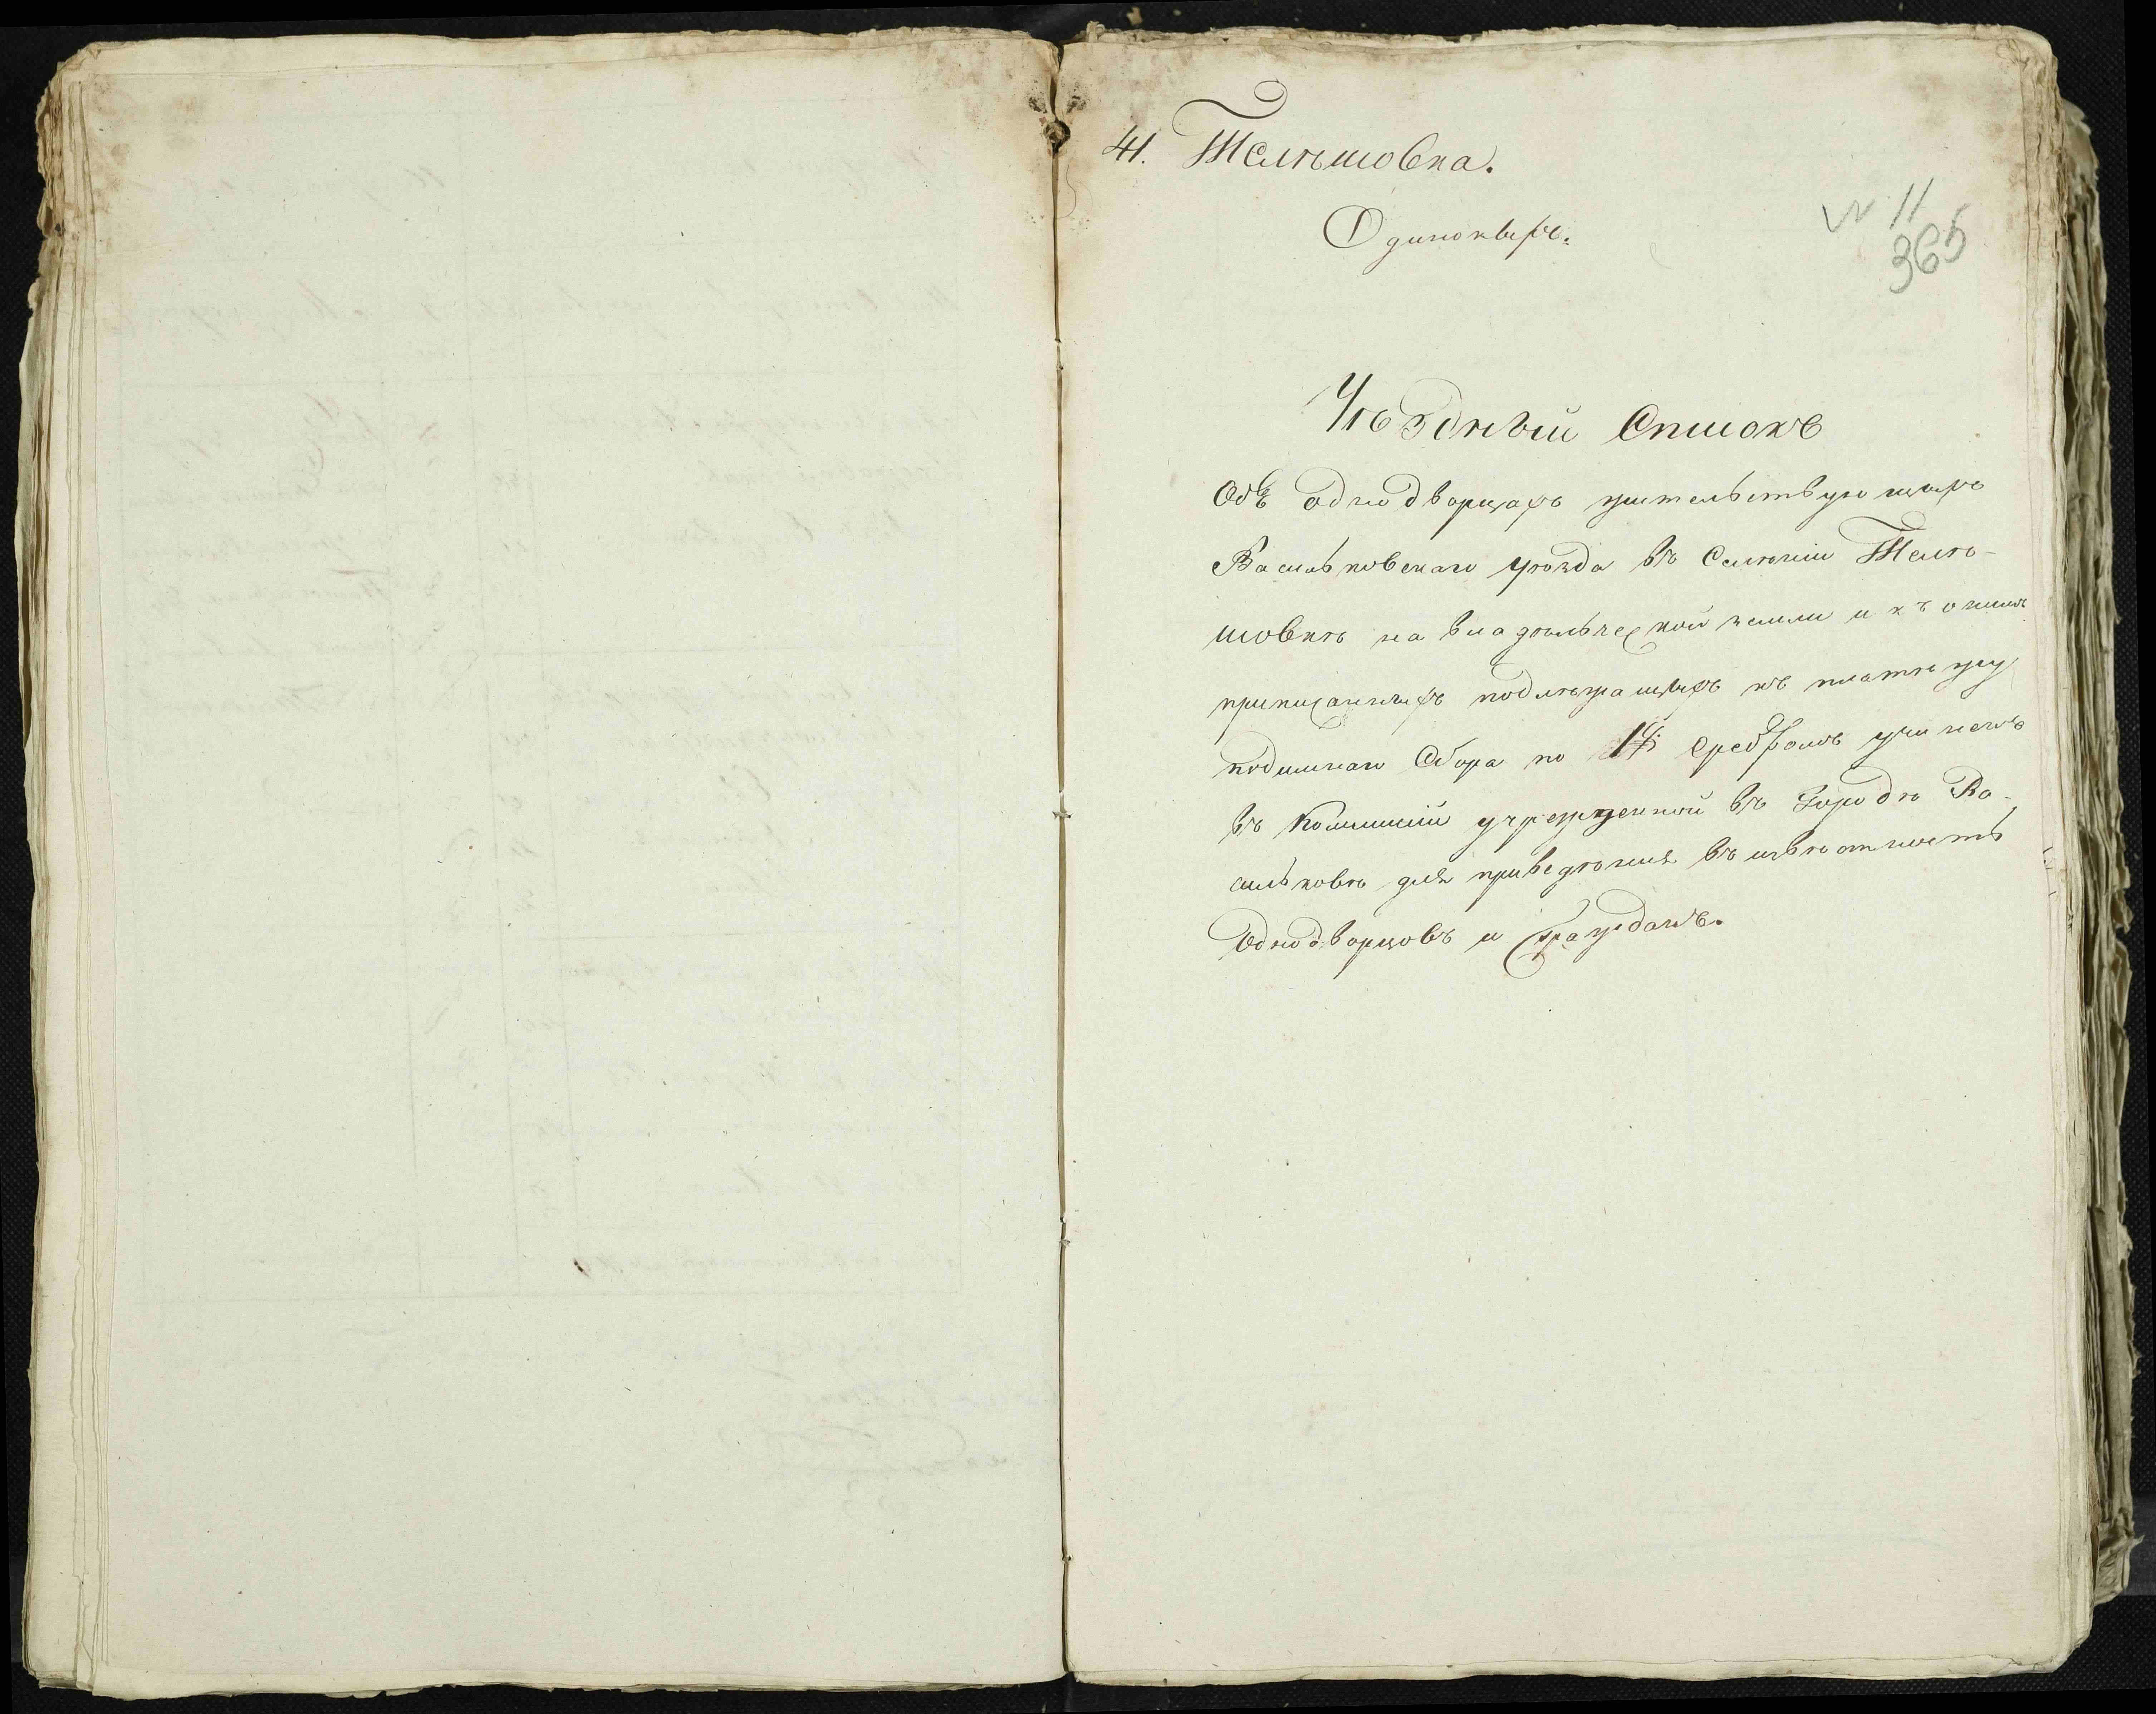 41. Телѣшовка.
Одинокихъ.
№ 11
365
Уѣздный Списокъ
Объ однодворцахъ жительствующихъ
Васильковскаго уѣзда въ Селеніи Телѣ-
шовкѣ на владѣльческой земли и къ онымъ
приписанныхъ подлежащихъ къ платежу
подымнаго Сбора по сребромъ учиненъ
въ Коммисіи учрежденной въ Городѣ Ва-
сильковѣ для приведѣнія въ извѣстность
Однодворцовъ и Гражданъ.